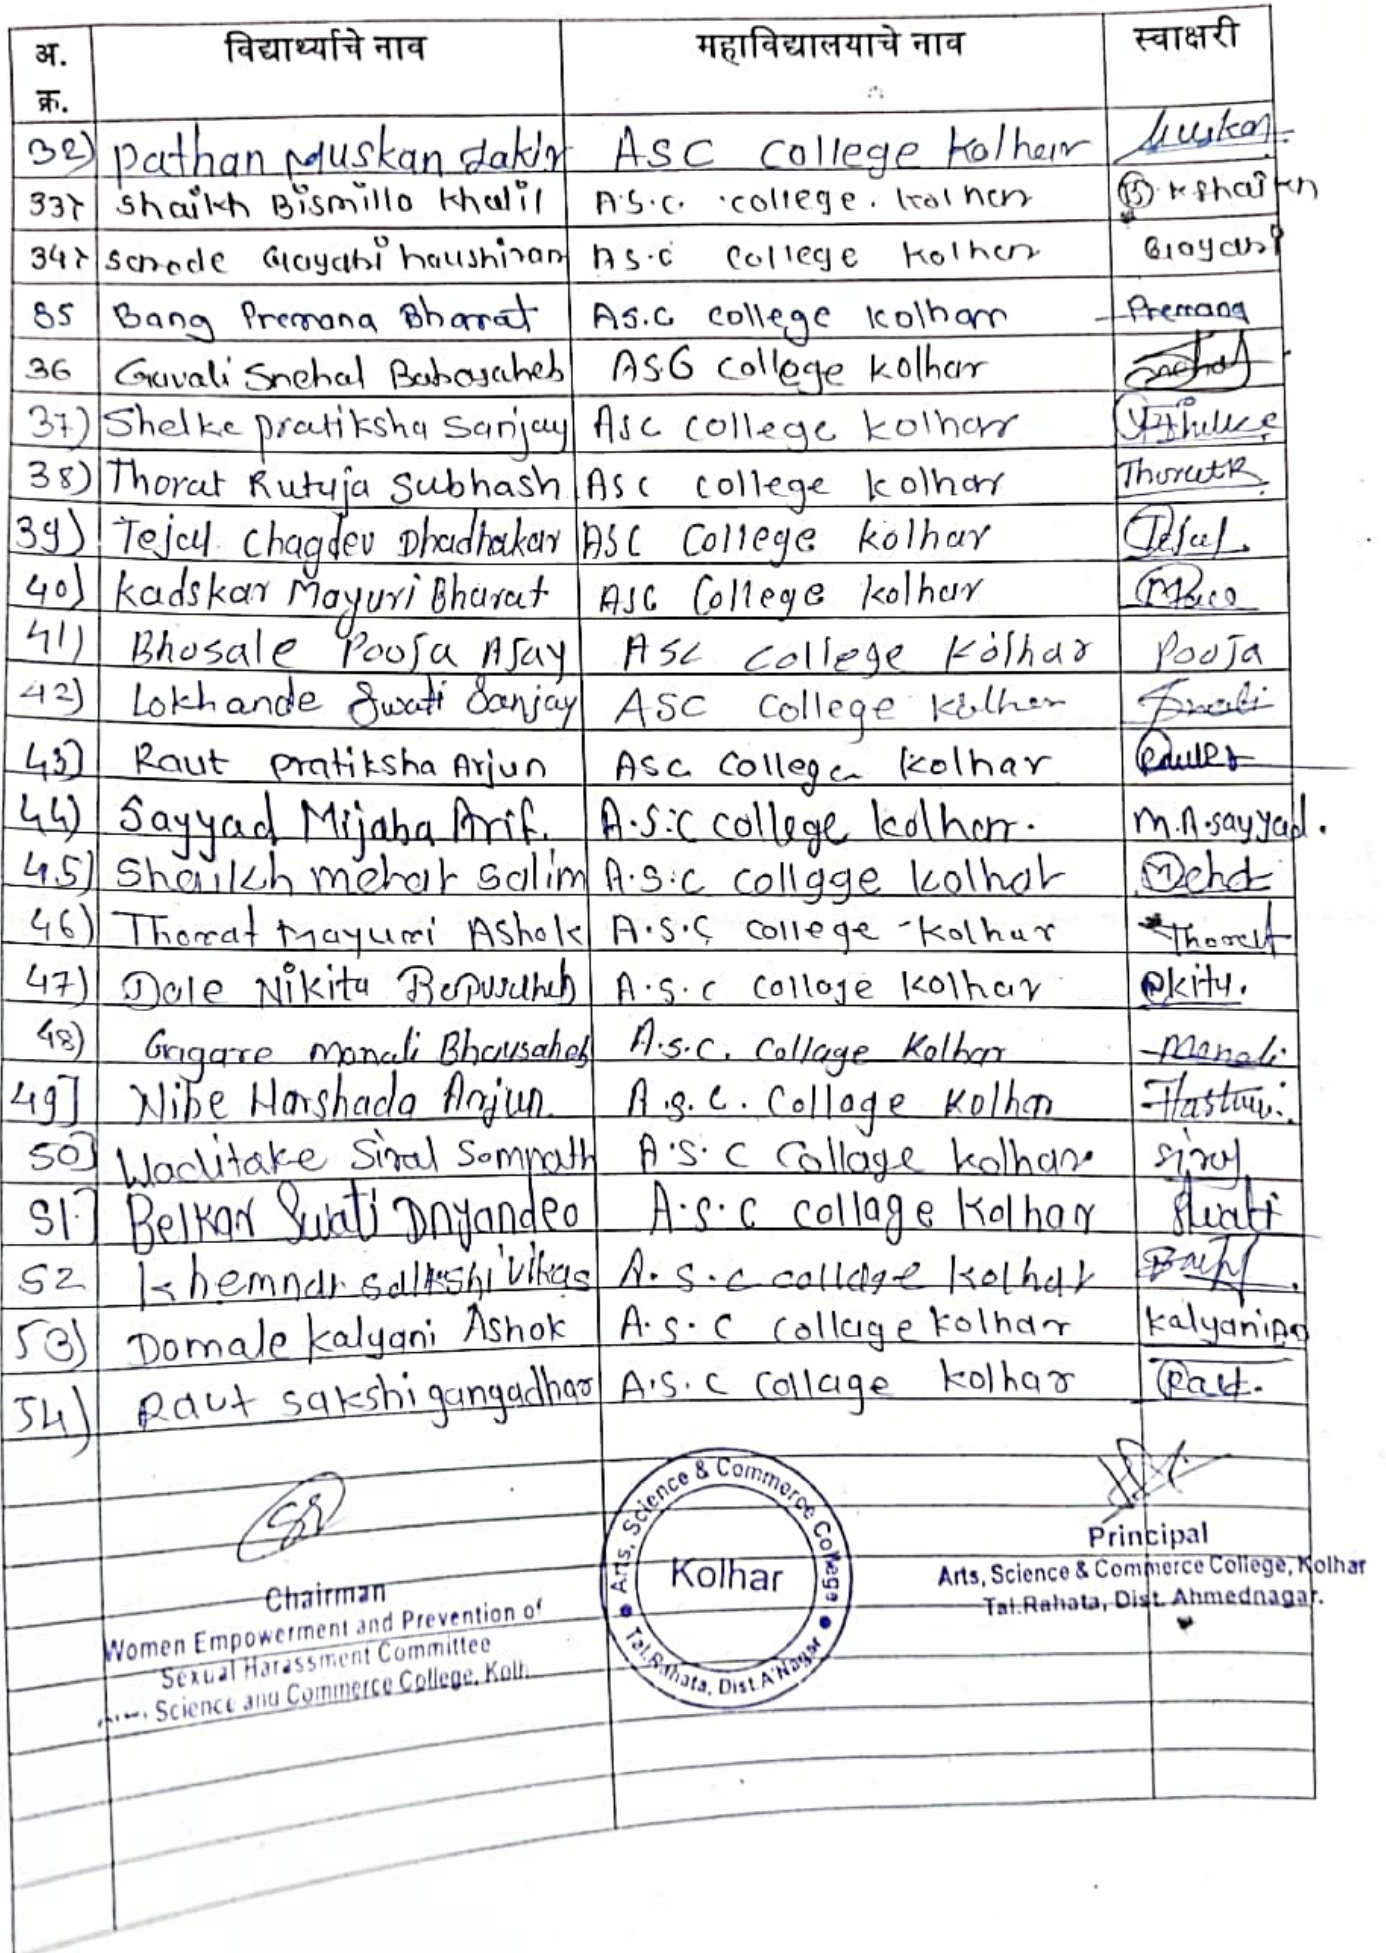 अ. क्र. विद्यार्थ्याचे नाव महाविद्यालयाचे नाव स्वाक्षरी
32) Pathan Muskan Zakir ASC College Kolhar Muskan
33) Shaikh Bismilla Khalil A.S.C. College. Kolhar
34) Sarode Gayatri haushiram A.S.C College Kolhar Gayatri
35 Bang Prerana Bharat AS.C College Kolhar Prerana
36 Gavali Snehal Babasaheb ASC College Kolhar Snehal
37) Shelke Pratiksha Sanjay ASC College Kolhar
38) Thorat Rutuja Subhash ASC College Kolhar ThoratR
39) Tejal Chagdev Dhadhakar ASC College Kolhar Tejal
40) Kadskar Mayuri Bharat ASC College Kolhar
41) Bhosale Pooja Ajay ASC College Kolhar Pooja
42) Lokhande Swati Sanjay ASC College Kolhar Swati
43) Raut Pratiksha Arjun ASC College Kolhar
44) Sayyad Mijaba Arif. A.S.C College Kolhar. M.A.Sayyad.
45) Shaikh Mehar Salim A.S.C Collgge Kolhar
46) Thorat Mayuri Ashok A.S.C College -Kolhar Thorat
47) Dale Nikita Bapusaheb A.S.C Collage Kolhar
48) Gagare Monali Bhausaheb A.S.C. Collage Kolhar Monali
49] Nibe Harshada Arjun. A.S.C. Collage Kolhar
50] Waditake Siral Somnath A.S.C Collage Kolhar Siral
51] Belkar Swati Dnyandeo A.S.C Collage Kolhar Swati
52 Khemnar Sakshi Vikas A.S.C Collage Kolhar
53) Domale Kalyani Ashok A.S.C Collage Kolhar Kalyani
54) Raut Sakshi gangadhar A.S.C Collage Kolhar Raut.
Chairman
Women Empowerment and Prevention of
Sexual Harassment Committee
Science and Commerce College, Kolh
Arts, Science & Commerce College
Kolhar
Tal.Rahata, Dist.A'Nagar
Principal
Arts, Science & Commerce College, Kolhar
Tal.Rahata, Dist. Ahmednagar.